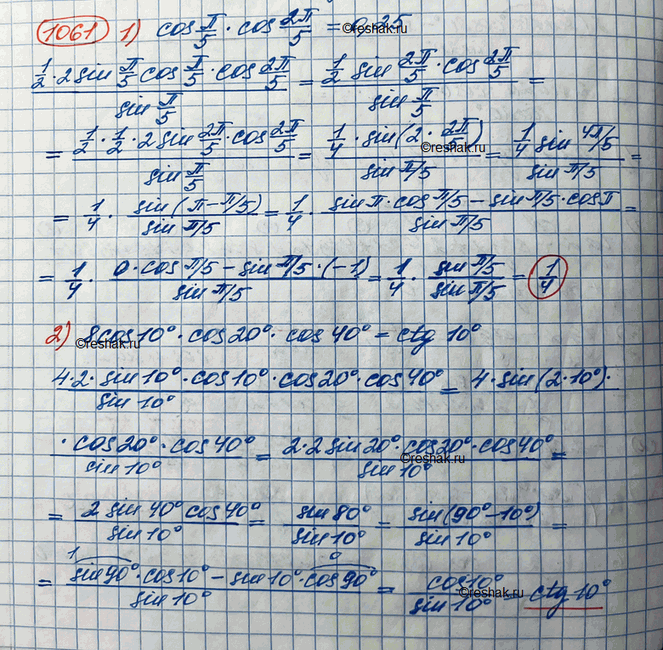 1061 1) cos π/5 · cos 2π/5 = 0,25
(1/2 · 2 sin π/5 cos π/5 · cos 2π/5) / (sin π/5) = (1/2 sin 2π/5 · cos 2π/5) / (sin π/5) =
= (1/2 · 1/2 · 2 sin 2π/5 · cos 2π/5) / (sin π/5) = (1/4 · sin(2 · 2π/5)) / (sin π/5) = (1/4 sin 4π/5) / (sin π/5) =
= 1/4 · (sin(π-π/5)) / (sin π/5) = 1/4 · (sin π · cos π/5 - sin π/5 · cos π) / (sin π/5) =
= 1/4 · (0 · cos π/5 - sin π/5 · (-1)) / (sin π/5) = 1/4 · (sin π/5) / (sin π/5) = 1/4
2) 8cos 10° · cos 20° · cos 40° = ctg 10°
(4·2· sin 10° · cos 10° · cos 20° · cos 40°) / (sin 10°) = 4 · sin(2·10°) ·
(· cos 20° · cos 40°) / (sin 10°) = (2·2 sin 20° · cos 20° · cos 40°) / (sin 10°) =
= (2 sin 40° cos 40°) / (sin 10°) = (sin 80°) / (sin 10°) = (sin(90°-10°)) / (sin 10°) =
1 0
= (sin 90° · cos 10° - sin 10° · cos 90°) / (sin 10°) = (cos 10°) / (sin 10°) = ctg 10°
©reshak.ru
©reshak.ru
©reshak.ru
©reshak.ru
©reshak.ru